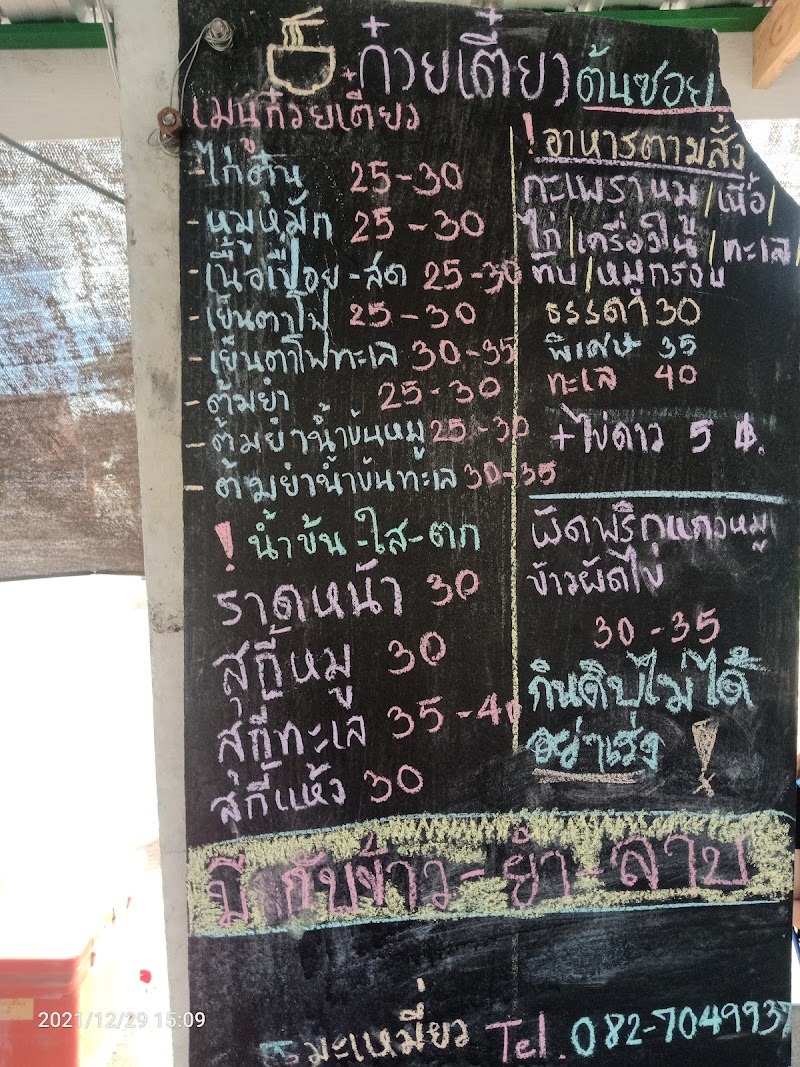 ก๋วยเตี๋ยว ต้นซอย
เมนูก๋วยเตี๋ยว
-ไก่ตุ๋น 25-30
-หมูหมัก 25-30
-เนื้อเปื่อย-สด 25-30
-เย็นตาโฟ 25-30
-เย็นตาโฟทะเล 30-35
-ต้มยำ 25-30
-ต้มยำน้ำข้นหมู 25-30
-ต้มยำน้ำข้นทะเล 30-35
! น้ำข้น-ใส-ตก
ราดหน้า 30
สุกี้หมู 30
สุกี้ทะเล 35-40
สุกี้แห้ง 30
! อาหารตามสั่ง
กะเพราหมู/เนื้อ/
ไก่/เครื่องใน/ทะเล/
ตับ/หมูกรอบ
ธรรดา 30
พิเศษ 35
ทะเล 40
+ไข่ดาว 5 ฿.
ผัดพริกแกงหมู
ข้าวผัดไข่
30-35
กินดิบไม่ได้
อย่าเร่ง !
มีกับข้าว-ยำ-ลาบ
มะเหมี่ยว Tel. 082-7049937
2021/12/29 15:09